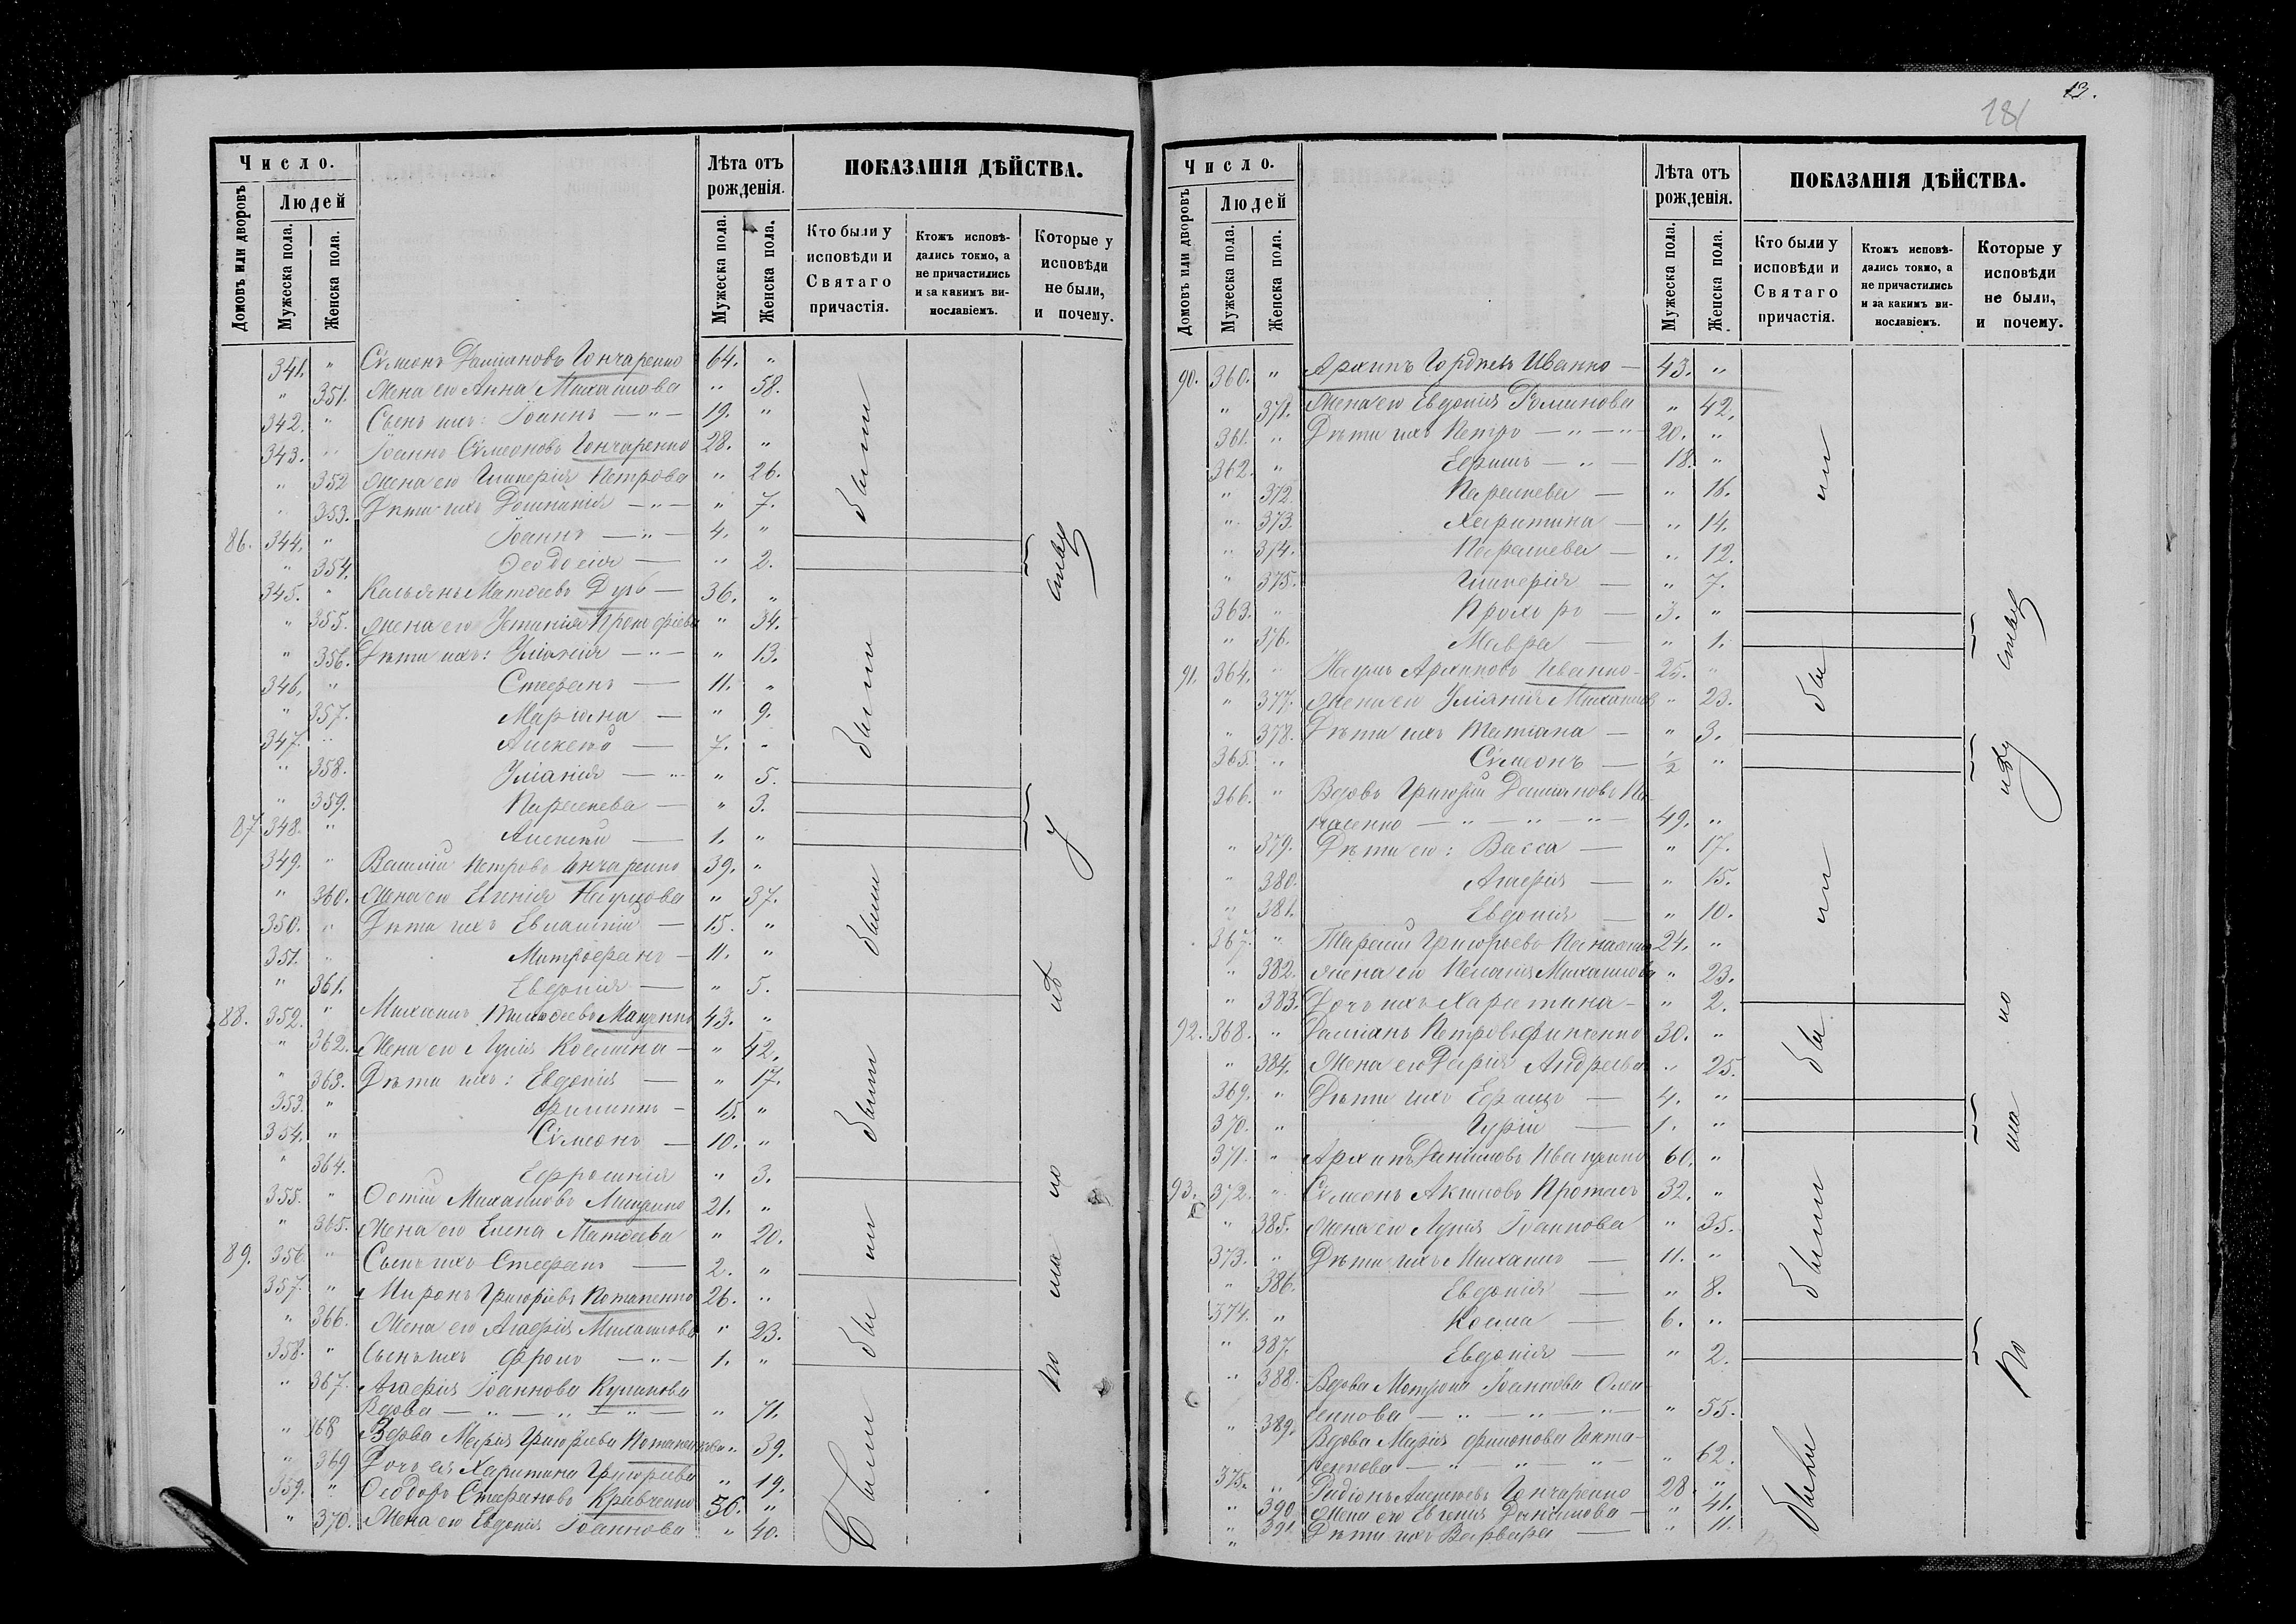 Число.
Лѣта отъ рожденія.
ПОКАЗАНІЯ ДѢЙСТВА.
Домовъ или дворовъ
Людей
Мужеска пола.
Женска пола.
Мужеска пола.
Женска пола.
Кто были у исповѣди и Святаго причастія.
Ктожъ исповѣдались токмо, а не причастились и за какимъ винословіемъ.
Которые у исповѣди не были, и почему.
341. " Сѵмеонъ Даміановъ Гончаренко 64. "
" 351. Жена его Анна Михаилова " 58.
342. " Сынъ ихъ: Іоаннъ — " — 19. "
343. " Іоаннъ Сѵмеоновъ Гончаренко 28. "
" 352 Жена его Гликерія Петрова " 26.
" 353. Дѣти ихъ Домникія — " — " 7.
86. 344. " Іоаннъ — " — 4. "
" 354. Ѳеодосія — " 2.
345. " Касьянъ Матѳеевъ Дубъ — 36. "
" 355. Жена его Устинія Прокофіева " 34.
" 356. Дѣти ихъ: Уліанія — " — " 13.
346. " Стефанъ — 11. "
" 357. Маріана — " 9.
347. " Алексѣй — 7. "
" 358. Уліанія — " 5.
" 359. Параскева — " 3.
87. 348. " Алексѣй — 1. "
349. " Василій Петровъ Гончаренко 39. "
" 360. Жена его Евгенія Наумова " 37.
350. " Дѣти ихъ Евлампій — 15. "
351. " Митрофанъ — 11. "
" 361. Евдокія — " 5.
88. 352. " Михаилъ Тимоѳеевъ Мащенко 43. "
" 362. Жена его Лукія Косьмина — " 42.
" 363. Дѣти ихъ: Евдокія — " 17.
353. " Филиппъ — 15. "
354. " Сѵмеонъ — 10. "
" 364. Евфросинія " 3.
355. " Михаиловъ 21. "
" 365. Жена его Елена Матѳеева " 20.
89. 356 " Сынъ ихъ Стефанъ — 2. "
357. " Миронъ Григоріевъ Потапенко 26. "
" 366. Жена его Агафія Михаилова " 23.
358. " Сынъ ихъ Фролъ — " — 1. "
" 367. Агафія Іоаннова
Вдова — " — " — " — " 71.
" 368 Вдова Марія Григоріева Потапенкова " 39.
" 369 Дочь ея Харитина Григоріева " 19.
359. " Ѳеодоръ Стефановъ Кравченко 50. "
" 370. Жена его Евдокія Іоаннова " 40.
были
были
были
были
бы ли
Были
По ма ло лѣт ству
181
13.
Число.
Лѣта отъ рожденія.
ПОКАЗАНІЯ ДѢЙСТВА.
Домовъ или дворовъ
Людей
Мужеска пола.
Женска пола.
Мужеска пола.
Женска пола.
Кто были у исповѣди и Святаго причастія.
Ктожъ исповѣдались токмо, а не причастились и за какимъ винословіемъ.
Которые у исповѣди не были, и почему.
90. 360. " Архипъ Гордѣевъ Ивашко — 43. "
" 371. Жена его Евдокія Романова " 42.
361. " Дѣти ихъ Петръ — " — " 20. "
362. " Ефримъ — " — 18. "
" 372. Параскева — " 16.
" 373. Харитина — " 14.
" 374. Параскева — " 12.
" 375. Гликерія — " 7.
363. " Прохоръ — 3. "
" 376. Мавра — " 1.
91. 364. " Наумъ Архиповъ Ивашко — 25. "
" 377. Жена его Уліанія Михаилова " 23.
" 378. Дѣти ихъ Татіана — " 3.
365. " Сѵмеонъ — ½ "
366. " Вдовъ Григорій Даміановъ Па-
насенко — " — " — " — 49. "
" 379. Дѣти его: Васса — " 17.
" 380. Агафія — " 15.
" 381. Евдокія — " 10.
367. " Тарасій Григорьевъ Панасенко 24. "
" 382. Жена его Пелагія Михаилова " 23.
" 383. Дочь ихъ Харитина — " 2.
92. 368. " Даміанъ Петровъ 30. "
" 384. Жена его Дарія Андреева " 25.
369. " Дѣти ихъ — 4. "
370. " Гурій — 1. "
371. " Архипъ Даниловъ 60. "
93. 372. " Сѵмеонъ Акимовъ 32. "
" 385. Жена его Лукія Іоаннова " 35.
373. " Дѣти ихъ Михаилъ — 11. "
" 386. Евдокія — " 8.
374. " Косма — 6. "
" 387. Евдокія — " 2.
" 388. Вдова Матрона Іоаннова
— " — " — " — " 55.
" 389. Вдова Марія Филионова
— " — " — " — " 62.
375. " Радіонъ Алексѣевъ Гончаренко 28. "
" 390. Жена его Евгенія Данилова — " 41.
" 391. Дѣти ихъ Варвара — " 11.
бы ли
бы ли
были
были
По ма ло лѣт ству